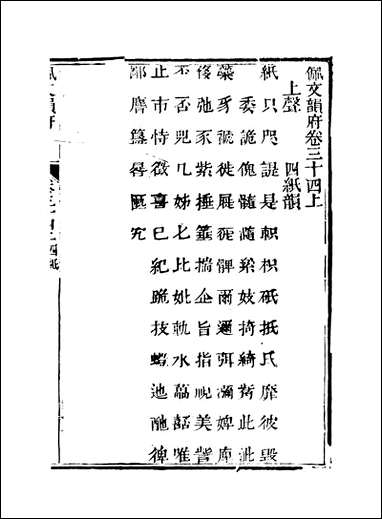 佩文韻府卷三十四上
上聲 四紙韻
紙只咫諟是軹枳砥抵氏靡彼毀
委詭傀髓䯝絫妓掎綺觜此泚
蘂豸褫徙屣髀爾邇弭瀰婢庳
侈弛豕紫捶箠揣企旨指視美訾
否兕几姊匕比妣軌水唯
止市恃徵喜已紀跪技迤酏
鄙簋晷匭宄